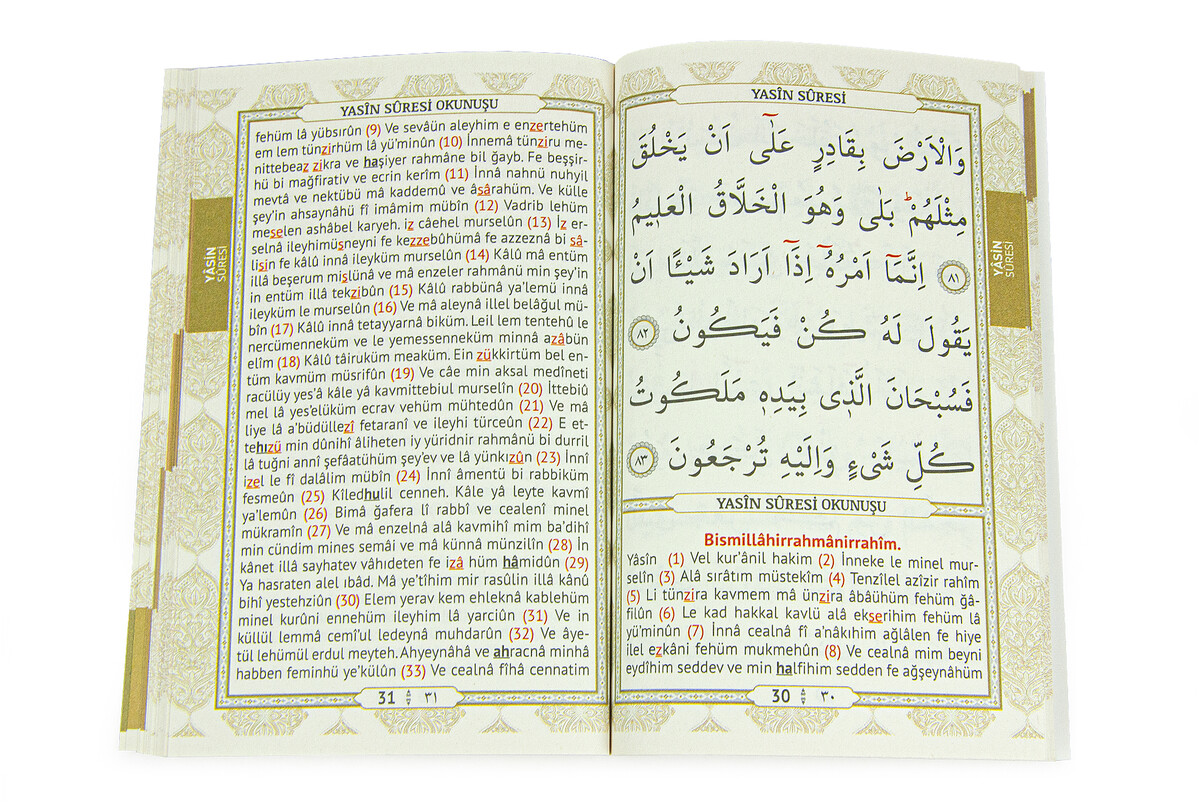 YASÎN SÛRESİ
وَالْاَرْضَ بِقَادِرٍ عَلٰٓى اَنْ يَخْلُقَ
مِثْلَهُمْۜ بَلٰى وَهُوَ الْخَلَّاقُ الْعَل۪يمُ
﴿٨١﴾ اِنَّمَٓا اَمْرُهُٓ اِذَٓا اَرَادَ شَيْـًٔا اَنْ
يَقُولَ لَهُ كُنْ فَيَكُونُ ﴿٨٢﴾
فَسُبْحَانَ الَّذ۪ي بِيَدِه۪ مَلَكُوتُ
كُلِّ شَيْءٍ وَاِلَيْهِ تُرْجَعُونَ ﴿٨٣﴾
YASÎN SÛRESİ OKUNUŞU
Bismillâhirrahmânirrahîm.
Yâsîn (1) Vel kur’ânil hakim (2) İnneke le minel mur-
selîn (3) Alâ sırâtım müstekîm (4) Tenzîlel azîzir rahîm
(5) Li tünzira kavmem mâ ünzira âbâühüm fehüm ğâ-
filûn (6) Le kad hakkal kavlü alâ ekserihim fehüm lâ
yü’minûn (7) İnnâ cealnâ fî a’nâkıhim ağlâlen fe hiye
ilel ezkâni fehüm mukmehûn (8) Ve cealnâ mim beyni
eydîhim seddev ve min halfihim sedden fe ağşeynâhüm
30 ٣٠
YÂSİN
SÛRESİ
YASÎN SÛRESİ OKUNUŞU
fehüm lâ yübsırûn (9) Ve sevâün aleyhim e enzertehüm
em lem tünzirhüm lâ yü’minûn (10) İnnemâ tünziru me-
nittebeaz zikra ve haşiyer rahmâne bil ğayb. Fe beşşir-
hü bi mağfirativ ve ecrin kerîm (11) İnnâ nahnü nuhyil
mevtâ ve nektübü mâ kaddemû ve âsârahüm. Ve külle
şey’in ahsaynâhü fî imâmim mübîn (12) Vadrib lehüm
meselen ashâbel karyeh. iz câehel murselûn (13) İz er-
selnâ ileyhimüsneyni fe kezzebûhümâ fe azzeznâ bi sâ-
lisin fe kâlû innâ ileyküm murselûn (14) Kâlû mâ entüm
illâ beşerum mislünâ ve mâ enzeler rahmânü min şey’in
in entüm illâ tekzibûn (15) Kâlû rabbünâ ya’lemü innâ
ileyküm le murselûn (16) Ve mâ aleynâ illel belâğul mü-
bîn (17) Kâlû innâ tetayyarnâ biküm. Leil lem tentehû le
nercümenneküm ve le yemessenneküm minnâ azâbün
elîm (18) Kâlû tâiruküm meaküm. Ein zükkirtüm bel en-
tüm kavmüm müsrifûn (19) Ve câe min aksal medîneti
racülüy yes’â kâle yâ kavmittebiul murselîn (20) İttebiû
mel lâ yes’elüküm ecrav vehüm mühtedûn (21) Ve mâ
liye lâ a’büdüllezî fetaranî ve ileyhi türceûn (22) E et-
tehızü min dûnihî âliheten iy yüridnir rahmânü bi durril
lâ tuğni annî şefâatühüm şey’ev ve lâ yünkızûn (23) İnnî
izel le fî dalâlim mübîn (24) İnnî âmentü bi rabbiküm
fesmeûn (25) Kîledhulil cenneh. Kâle yâ leyte kavmî
ya’lemûn (26) Bimâ ğafera lî rabbî ve cealenî minel
mükramîn (27) Ve mâ enzelnâ alâ kavmihî mim ba’dihî
min cündim mines semâi ve mâ künnâ münzilîn (28) İn
kânet illâ sayhatev vâhıdeten fe izâ hüm hâmidûn (29)
Ya hasraten alel ıbâd. Mâ ye’tîhim mir rasûlin illâ kânû
bihî yestehziûn (30) Elem yerav kem ehleknâ kablehüm
minel kurûni ennehüm ileyhim lâ yarciûn (31) Ve in
küllül lemmâ cemî’ul ledeynâ muhdarûn (32) Ve âye-
tül lehümül erdul meyteh. Ahyeynâhâ ve ahracnâ minhâ
habben feminhü ye’külûn (33) Ve cealnâ fîhâ cennatim
31 ٣١
YÂSİN
SÛRESİ